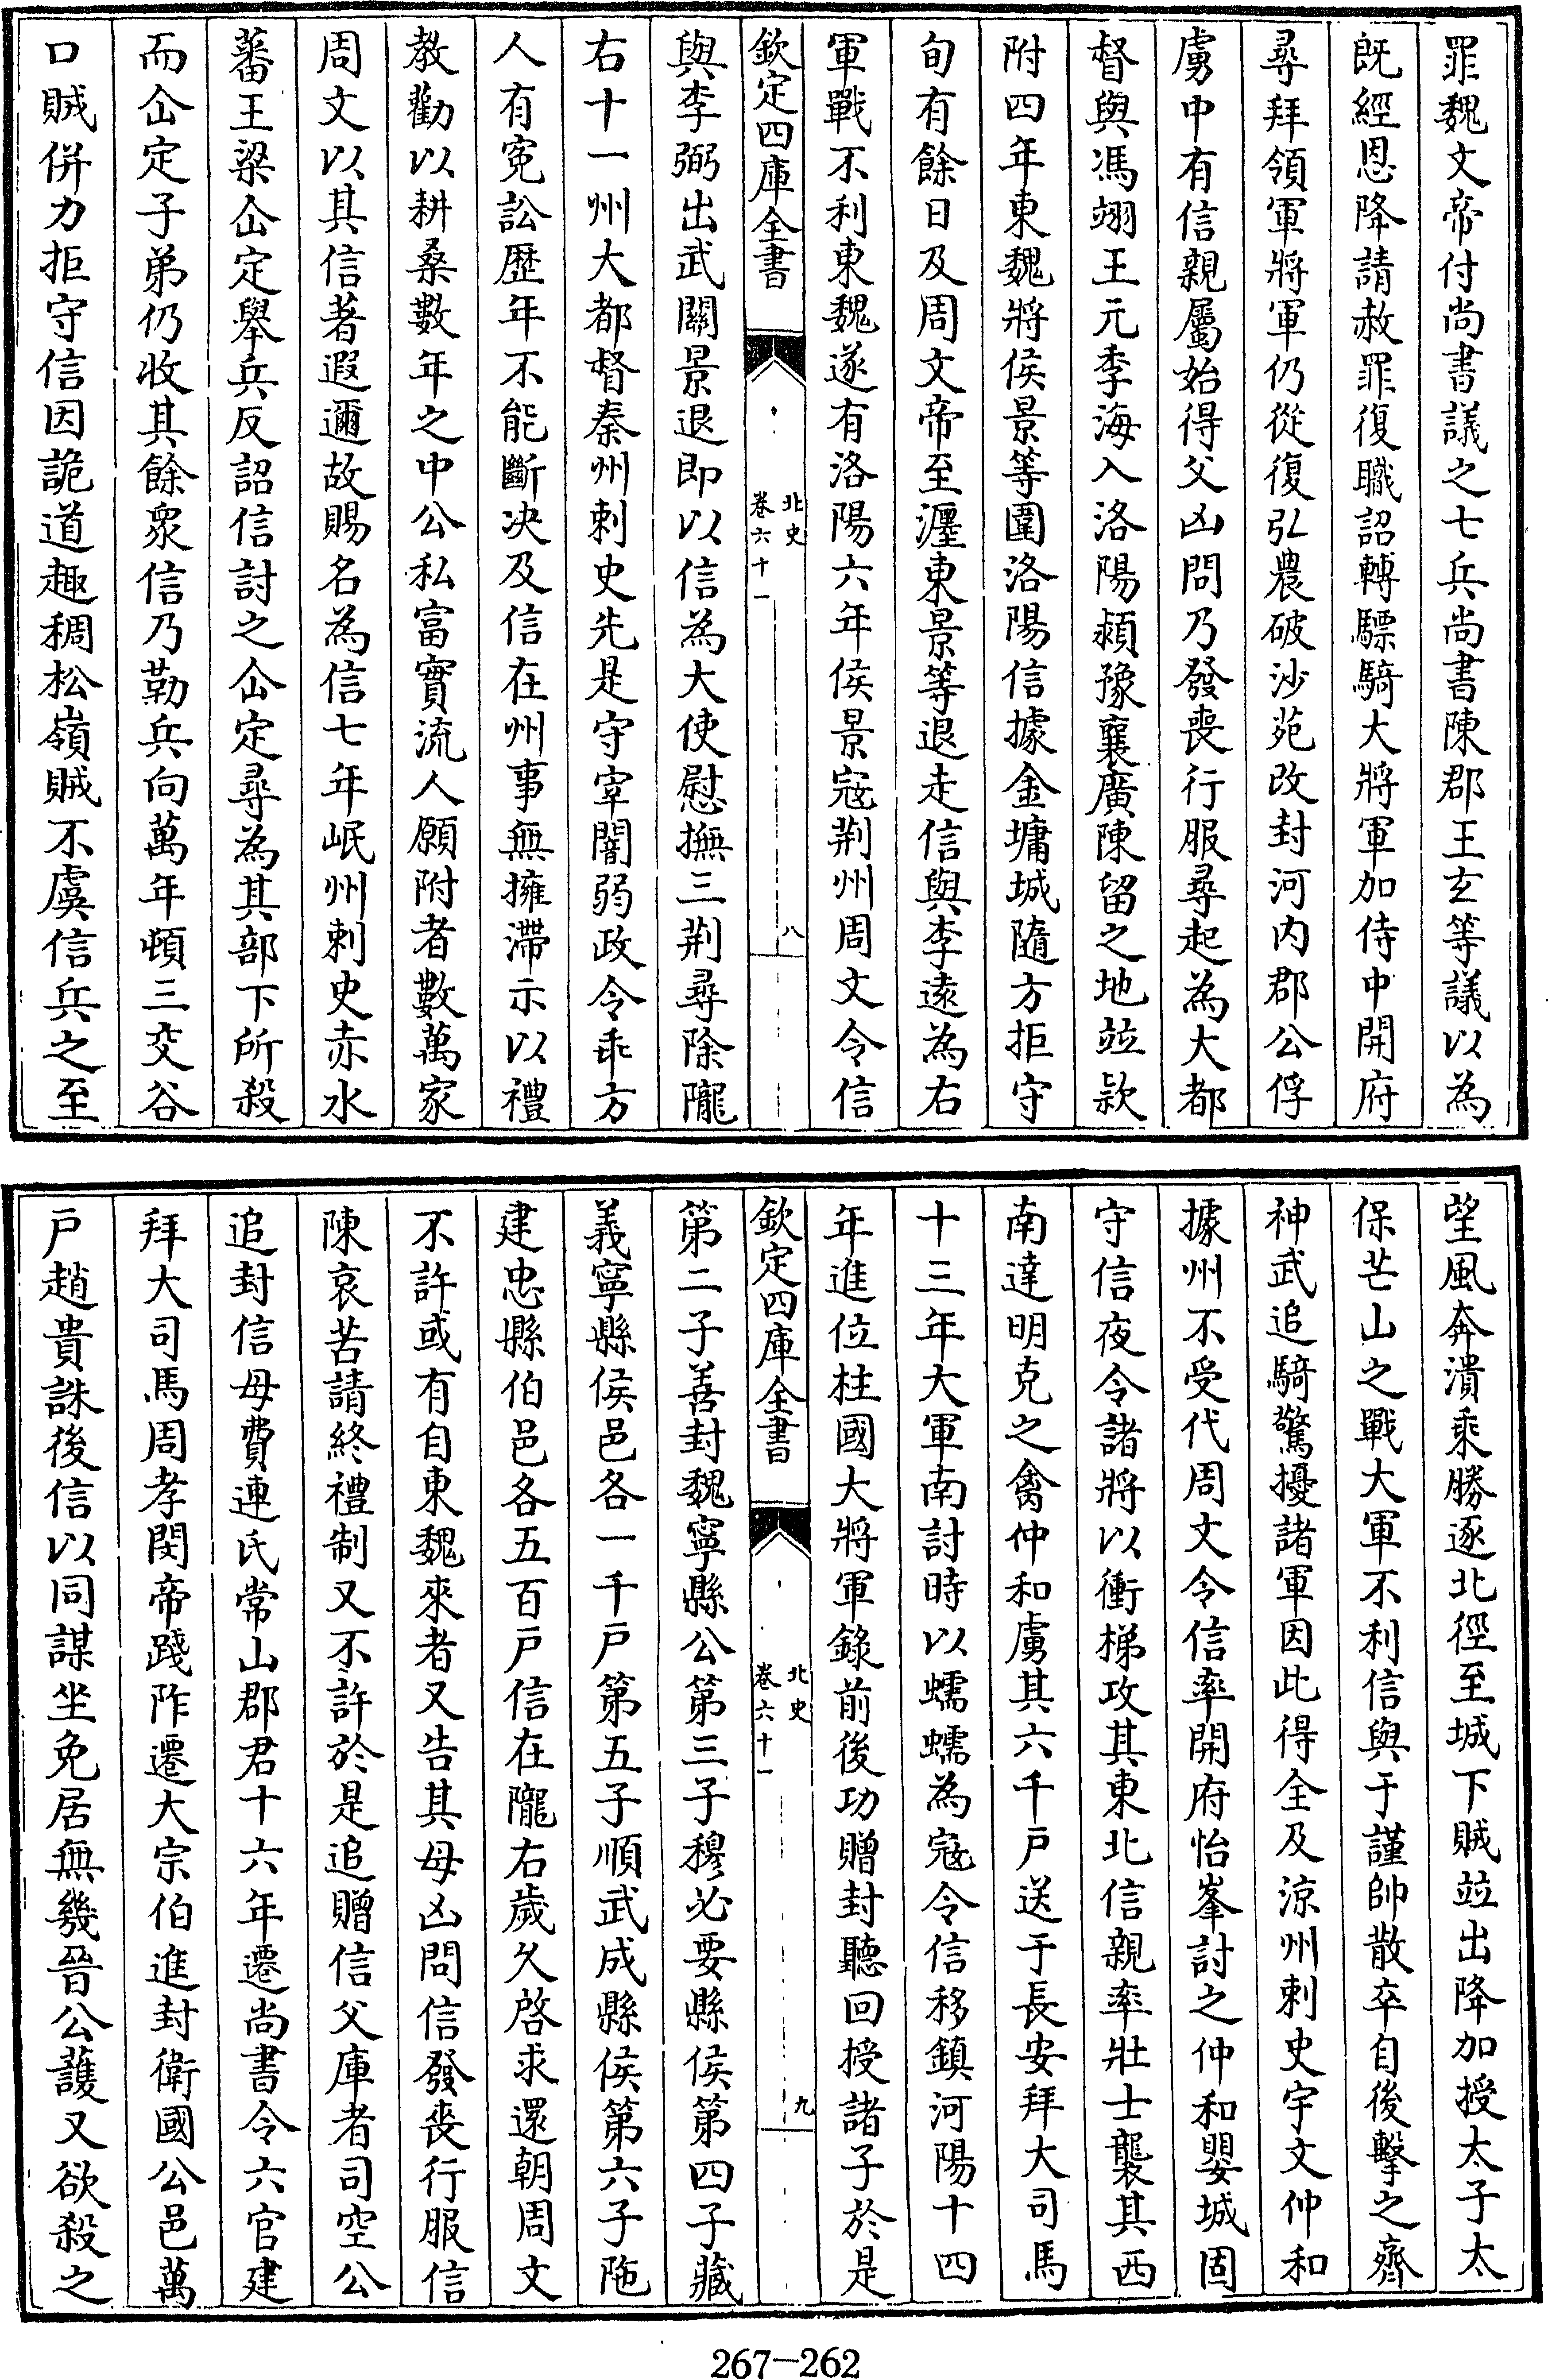 罪魏文帝付尚書議之七兵尚書陳郡王玄等議以為
既經恩降請赦罪復職詔轉驃騎大將軍加侍中開府
尋拜領軍將軍仍從復弘農破沙苑改封河内郡公俘
虜中有信親屬始得父凶問乃發喪行服尋起為大都
督與馮翊王元季海入洛陽潁豫襄廣陳留之地竝款
附四年東魏將侯景等圍洛陽信據金墉城隨方拒守
旬有餘日及周文帝至瀍東景等退走信與李遠為右
軍戰不利東魏遂有洛陽六年侯景寇荆州周文令信
欽定四庫全書
北史
卷六十一
八
與李弼出武關景退即以信為大使慰撫三荆尋除隴
右十一州大都督秦州刺史先是守宰闇弱政令乖方
人有寃訟歴年不能斷决及信在州事無擁滯示以禮
教勸以耕桑數年之中公私富實流人願附者數萬家
周文以其信著遐邇故賜名為信七年岷州刺史赤水
蕃王梁仚定舉兵反詔信討之仚定尋為其部下所殺
而仚定子弟仍收其餘衆信乃勒兵向萬年頓三交谷
口賊併力拒守信因詭道趣稠松嶺賊不虞信兵之至
望風奔潰乘勝逐北徑至城下賊竝出降加授太子太
保芒山之戰大軍不利信與于謹帥散卒自後擊之齊
神武追騎驚擾諸軍因此得全及涼州刺史宇文仲和
據州不受代周文令信率開府怡峯討之仲和嬰城固
守信夜令諸將以衝梯攻其東北信親率壯士襲其西
南達明克之禽仲和虜其六千戸送于長安拜大司馬
十三年大軍南討時以蠕蠕為寇令信移鎮河陽十四
年進位柱國大將軍錄前後功贈封聽回授諸子於是
欽定四庫全書
北史
卷六十一
九
第二子善封魏寧縣公第三子穆必要縣侯第四子藏
義寧縣侯邑各一千戸第五子順武成縣侯第六子陁
建忠縣伯邑各五百戸信在隴右歲久啓求還朝周文
不許或有自東魏來者又告其母凶問信發喪行服信
陳哀苦請終禮制又不許於是追贈信父庫者司空公
追封信母費連氏常山郡君十六年遷尚書令六官建
拜大司馬周孝閔帝踐阼遷大宗伯進封衛國公邑萬
戸趙貴誅後信以同謀坐免居無幾晉公護又欲殺之
267-262